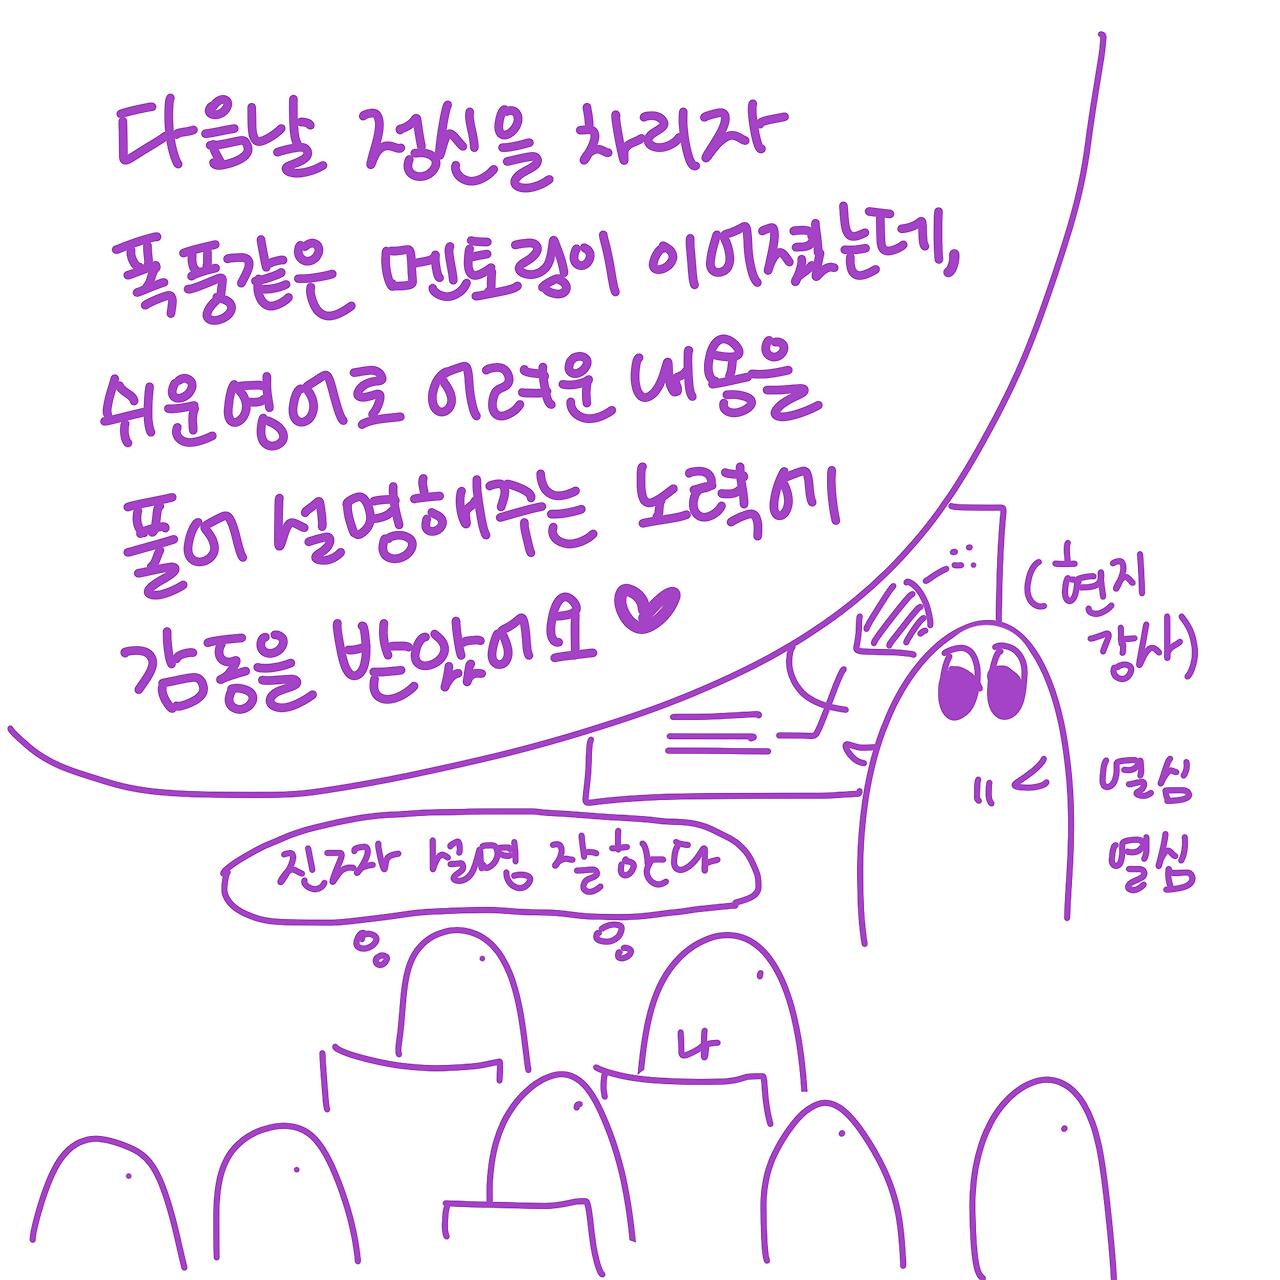 다음날 정신을 차리자
폭풍같은 멘토링이 이어졌는데,
쉬운영어로 어려운 내용을
풀어 설명해주는 노력에
감동을 받았어요
(현지
강사)
열심
열심
진그자 설명 잘한다
나